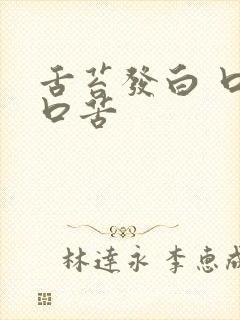 舌苔發白
口苦
林達永 李惠